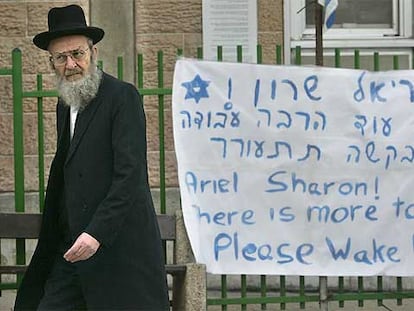 ריאל שרון !
עוד הרבה עבודה
בקשה תתעורר
Ariel Sharon!
here is more to
Please Wake